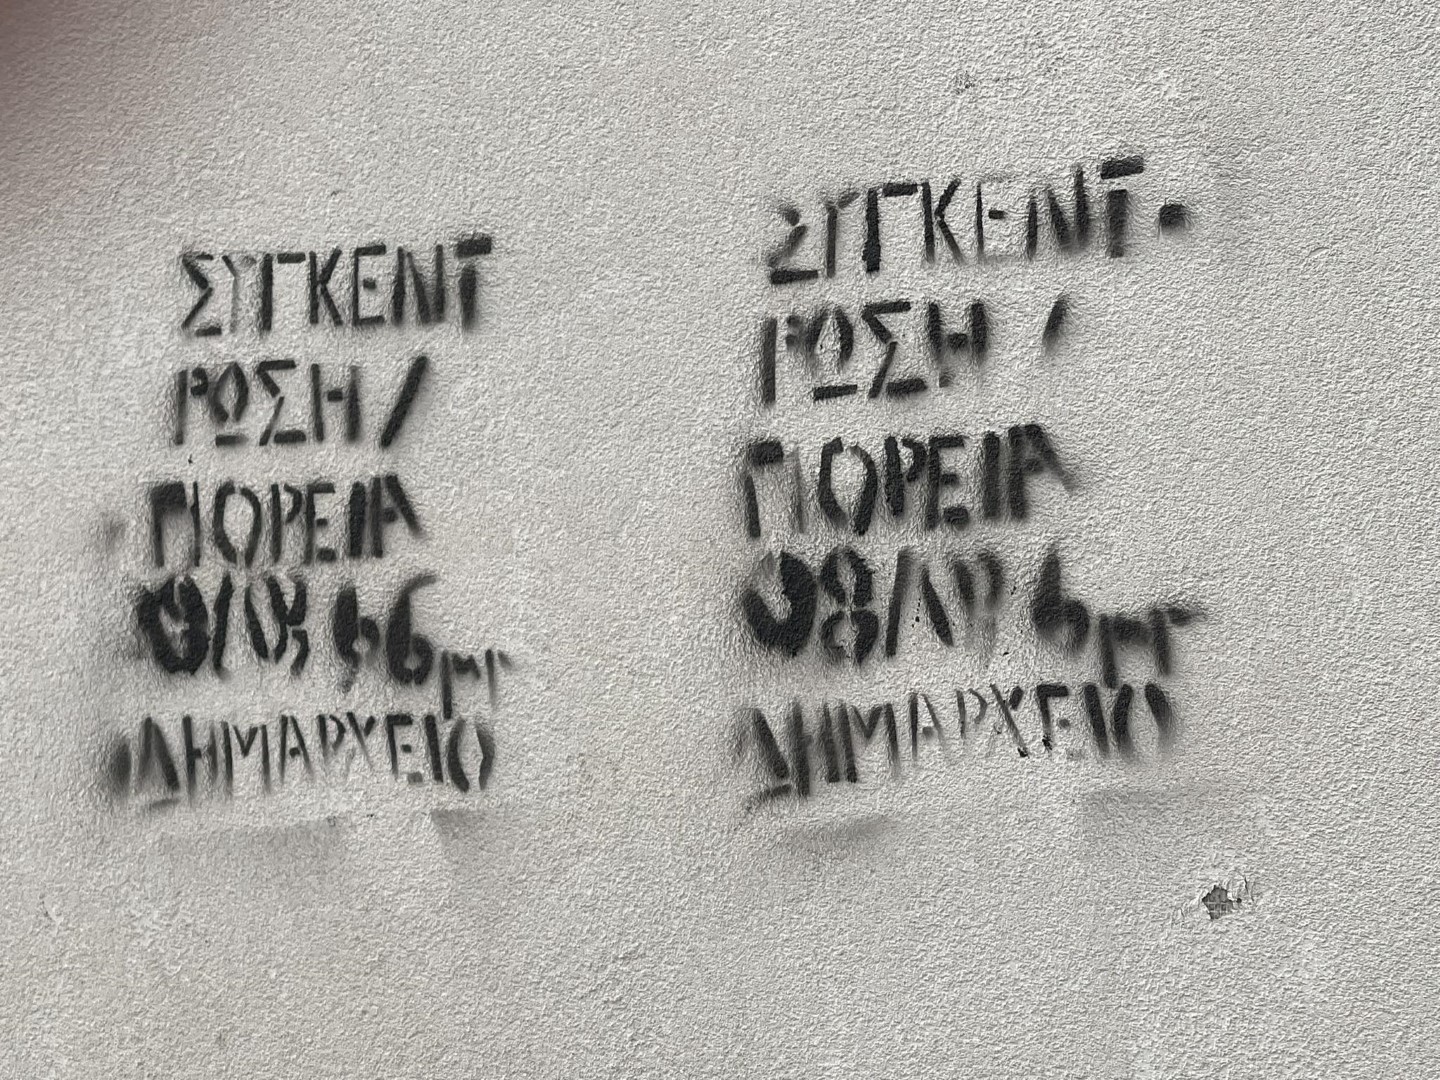 ΣΥΓΚΕΝΤ
ΡΩΣΗ /
ΠΟΡΕΙΑ
μμ
ΔΗΜΑΡΧΕΙΟ
ΣΥΓΚΕΝΤ.
ΡΩΣΗ /
ΠΟΡΕΙΑ
6μμ
ΔΗΜΑΡΧΕΙΟ